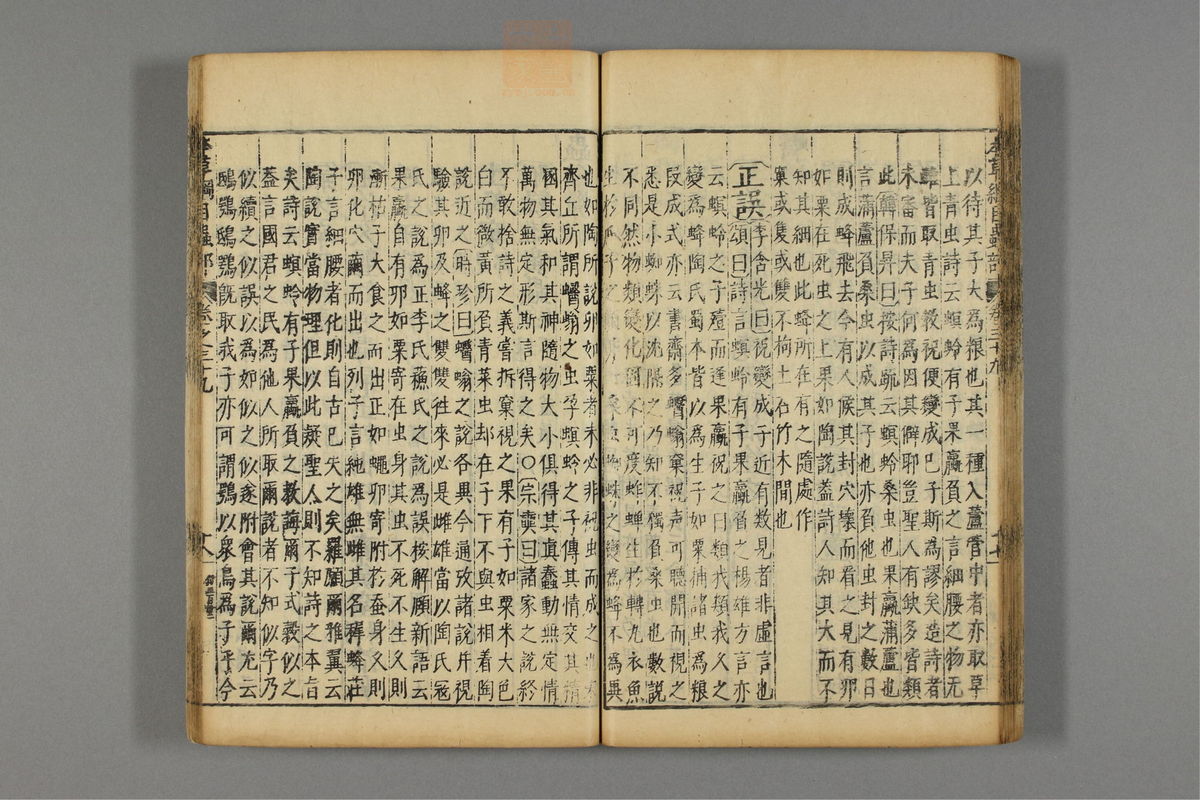 以待其子大為粮也其一種入蘆管中者亦取草
上青虫詩云螟蛉有子果蠃負之言細腰之物无
雌皆取青虫教祝便變成己子斯為謬矣造詩者
未審而夫子何為因其僻耶豈聖人有缺多皆類
此韓保昇曰按詩疏云螟蛉桑虫也果蠃蒲蘆也
言蒲蘆負桑虫以成其子也亦負他虫封之數日
則成蜂飛去今有人候其封穴壞而看之見有卵
如粟在死虫之上果如陶說蓋詩人知其大而不
知其細也此蜂所在有之隨處作
窠或隻或雙不拘土石竹木間也
正誤李含光曰祝變成子近有数見者非虛言也
頌曰詩言螟蛉有子果蠃負之楊雄方言亦
云螟蛉之子殪而逢果蠃祝之曰類我類我久之
變為蜂陶氏蜀本皆以為生子如粟捕諸虫為粮
段成式亦云書齋多蠮螉窠祝声可聽開而視之
悉是小蜘蛛以泥隔之乃知不獨負桑虫也數說
不同然物類變化固不可度蚱蟬生於轉丸衣魚
生於瓜子之為蜂不為異
也如陶所說卵如粟者未必非祝虫而成之也宋
齊丘所謂蠮螉之虫孕螟蛉之子傳其情交其精
國其氣和其神隨物大小俱得其真蠢動無定情
萬物無定形斯言得之矣〇宗奭曰諸家之說終
不敢捨詩之義嘗拆窠視之果有子如粟米大色
白而微黃所負青菜虫却在子下不與虫相着陶
說近之時珍曰蠮螉之說各異今通攷諸說并視
驗其卵及蜂之雙雙往來必是雌雄當以陶氏寇
氏之說為正李氏蘇氏之說為誤按解頤新語云
果蠃自有卵如粟寄在虫身其虫不死不生久則
漸枯子大食之而出正如蠅卵寄附於蚕身久則
卵化穴繭而出也列子言純雄無雌其名穉蜂莊
子言細腰者化則自古已失之矣羅願爾雅翼云
陶說實當物理但以此疑聖人則不知詩之本旨
矣詩云螟蛉有子果蠃負之教誨爾子式穀似之
蓋言國君之民為他人所取爾說者不知似字乃
似續之似誤以為如似之似遂附會其說爾尤云
鴟鴞鴟鴞旣取我子亦可謂鴞以眾鳥為子乎今
本草綱目蟲部
卷之三十九